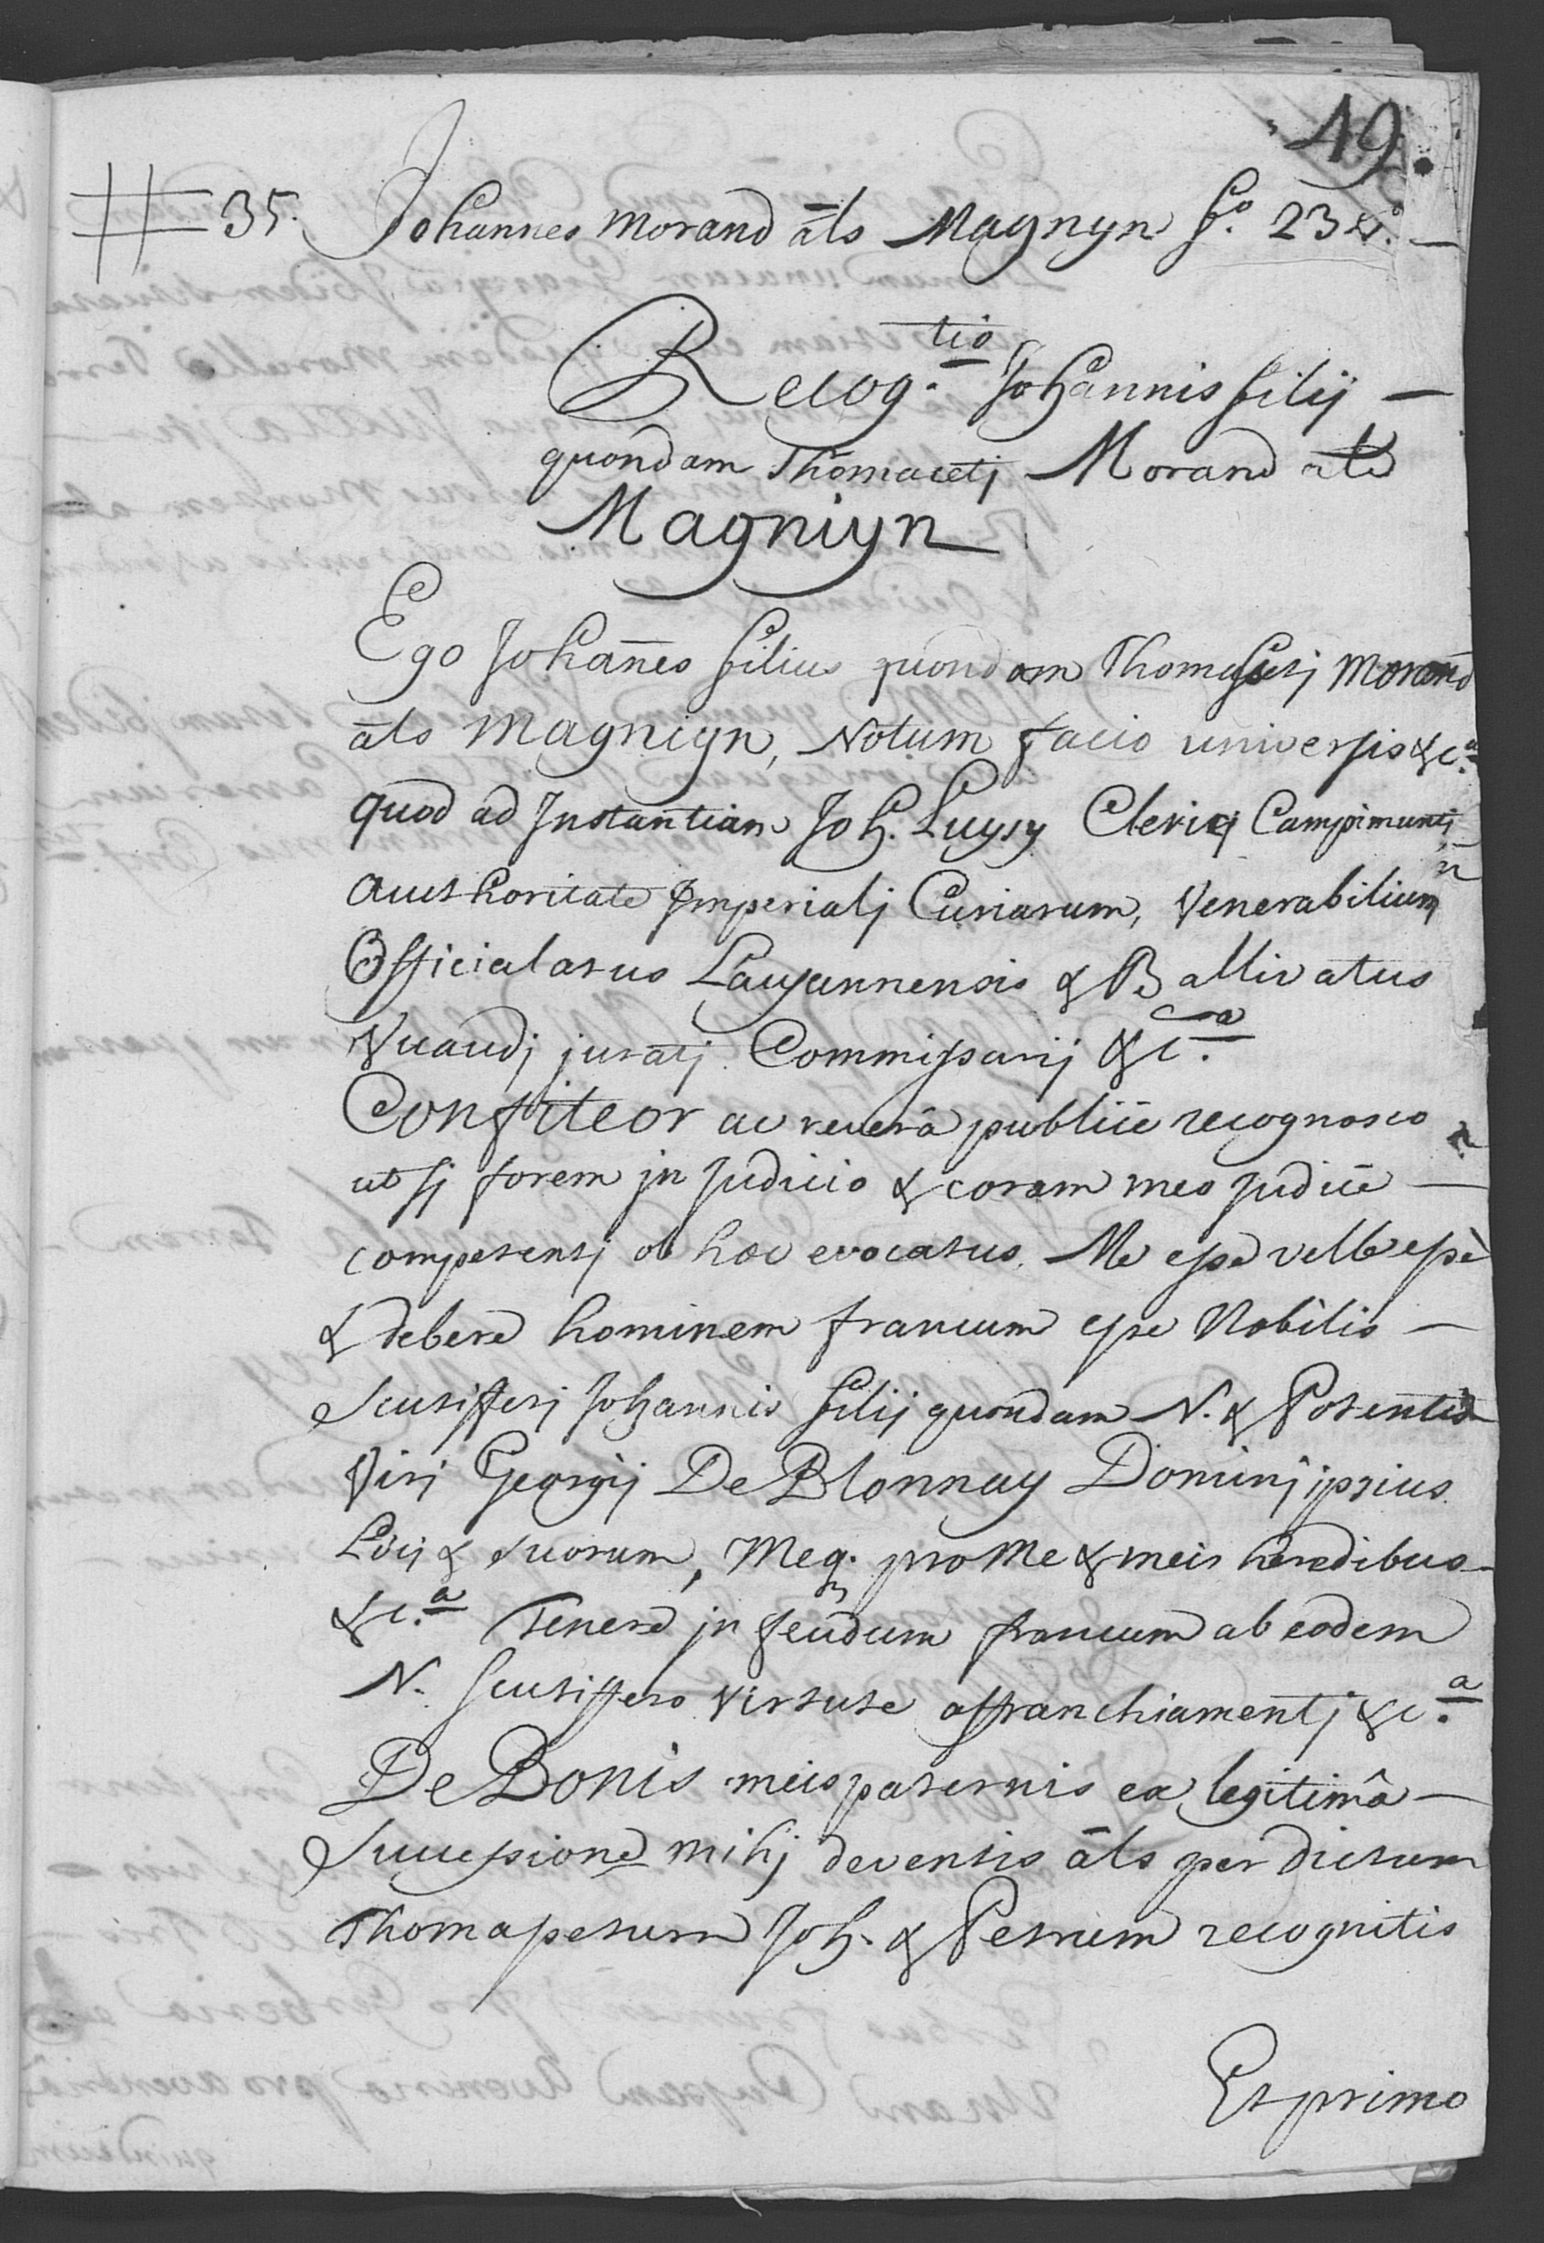 19.
35. Johannes Morand āls Magnyn fo. 23 vo.
Recog.tio Johannis filij
quondam Thomacetj Morand als
Magniyn
Ego Johan̄es filius quondam Thomassetj Morand
āls Magniyn, Notum facio universis &c.a
quod ad Instantiam Joh. Luysy Clericj Campimuntj
Authoritate Imperialj Curiarum, Venerabilium
Officialatus Lausannensis & Ballivatus
Vuaudj juratj Commissarij &c.a
Confiteor ac reverâ publicè recognosco
ut sj forem jn Judicio & coram meo judicē
competentj ob hoc evocatus. Me esse velle esse
& debere hominem francum esse Nobilis
Scutifferj Johannis filij quondam N. & Potentis
Virj Georgij De Blonnay Dominj ipsius
Locij & suorum, Meq. pro Me & meis heredibus
&c.a Tenere jn feudum francum ab eodem
N. Scutiffero virtute affranchiamentj &c.a
De Bonis meis paternis ex legitimâ
Successione mihj deventis āls per dictum
Thomasetum Joh. & Petrum recognitis
Et primo